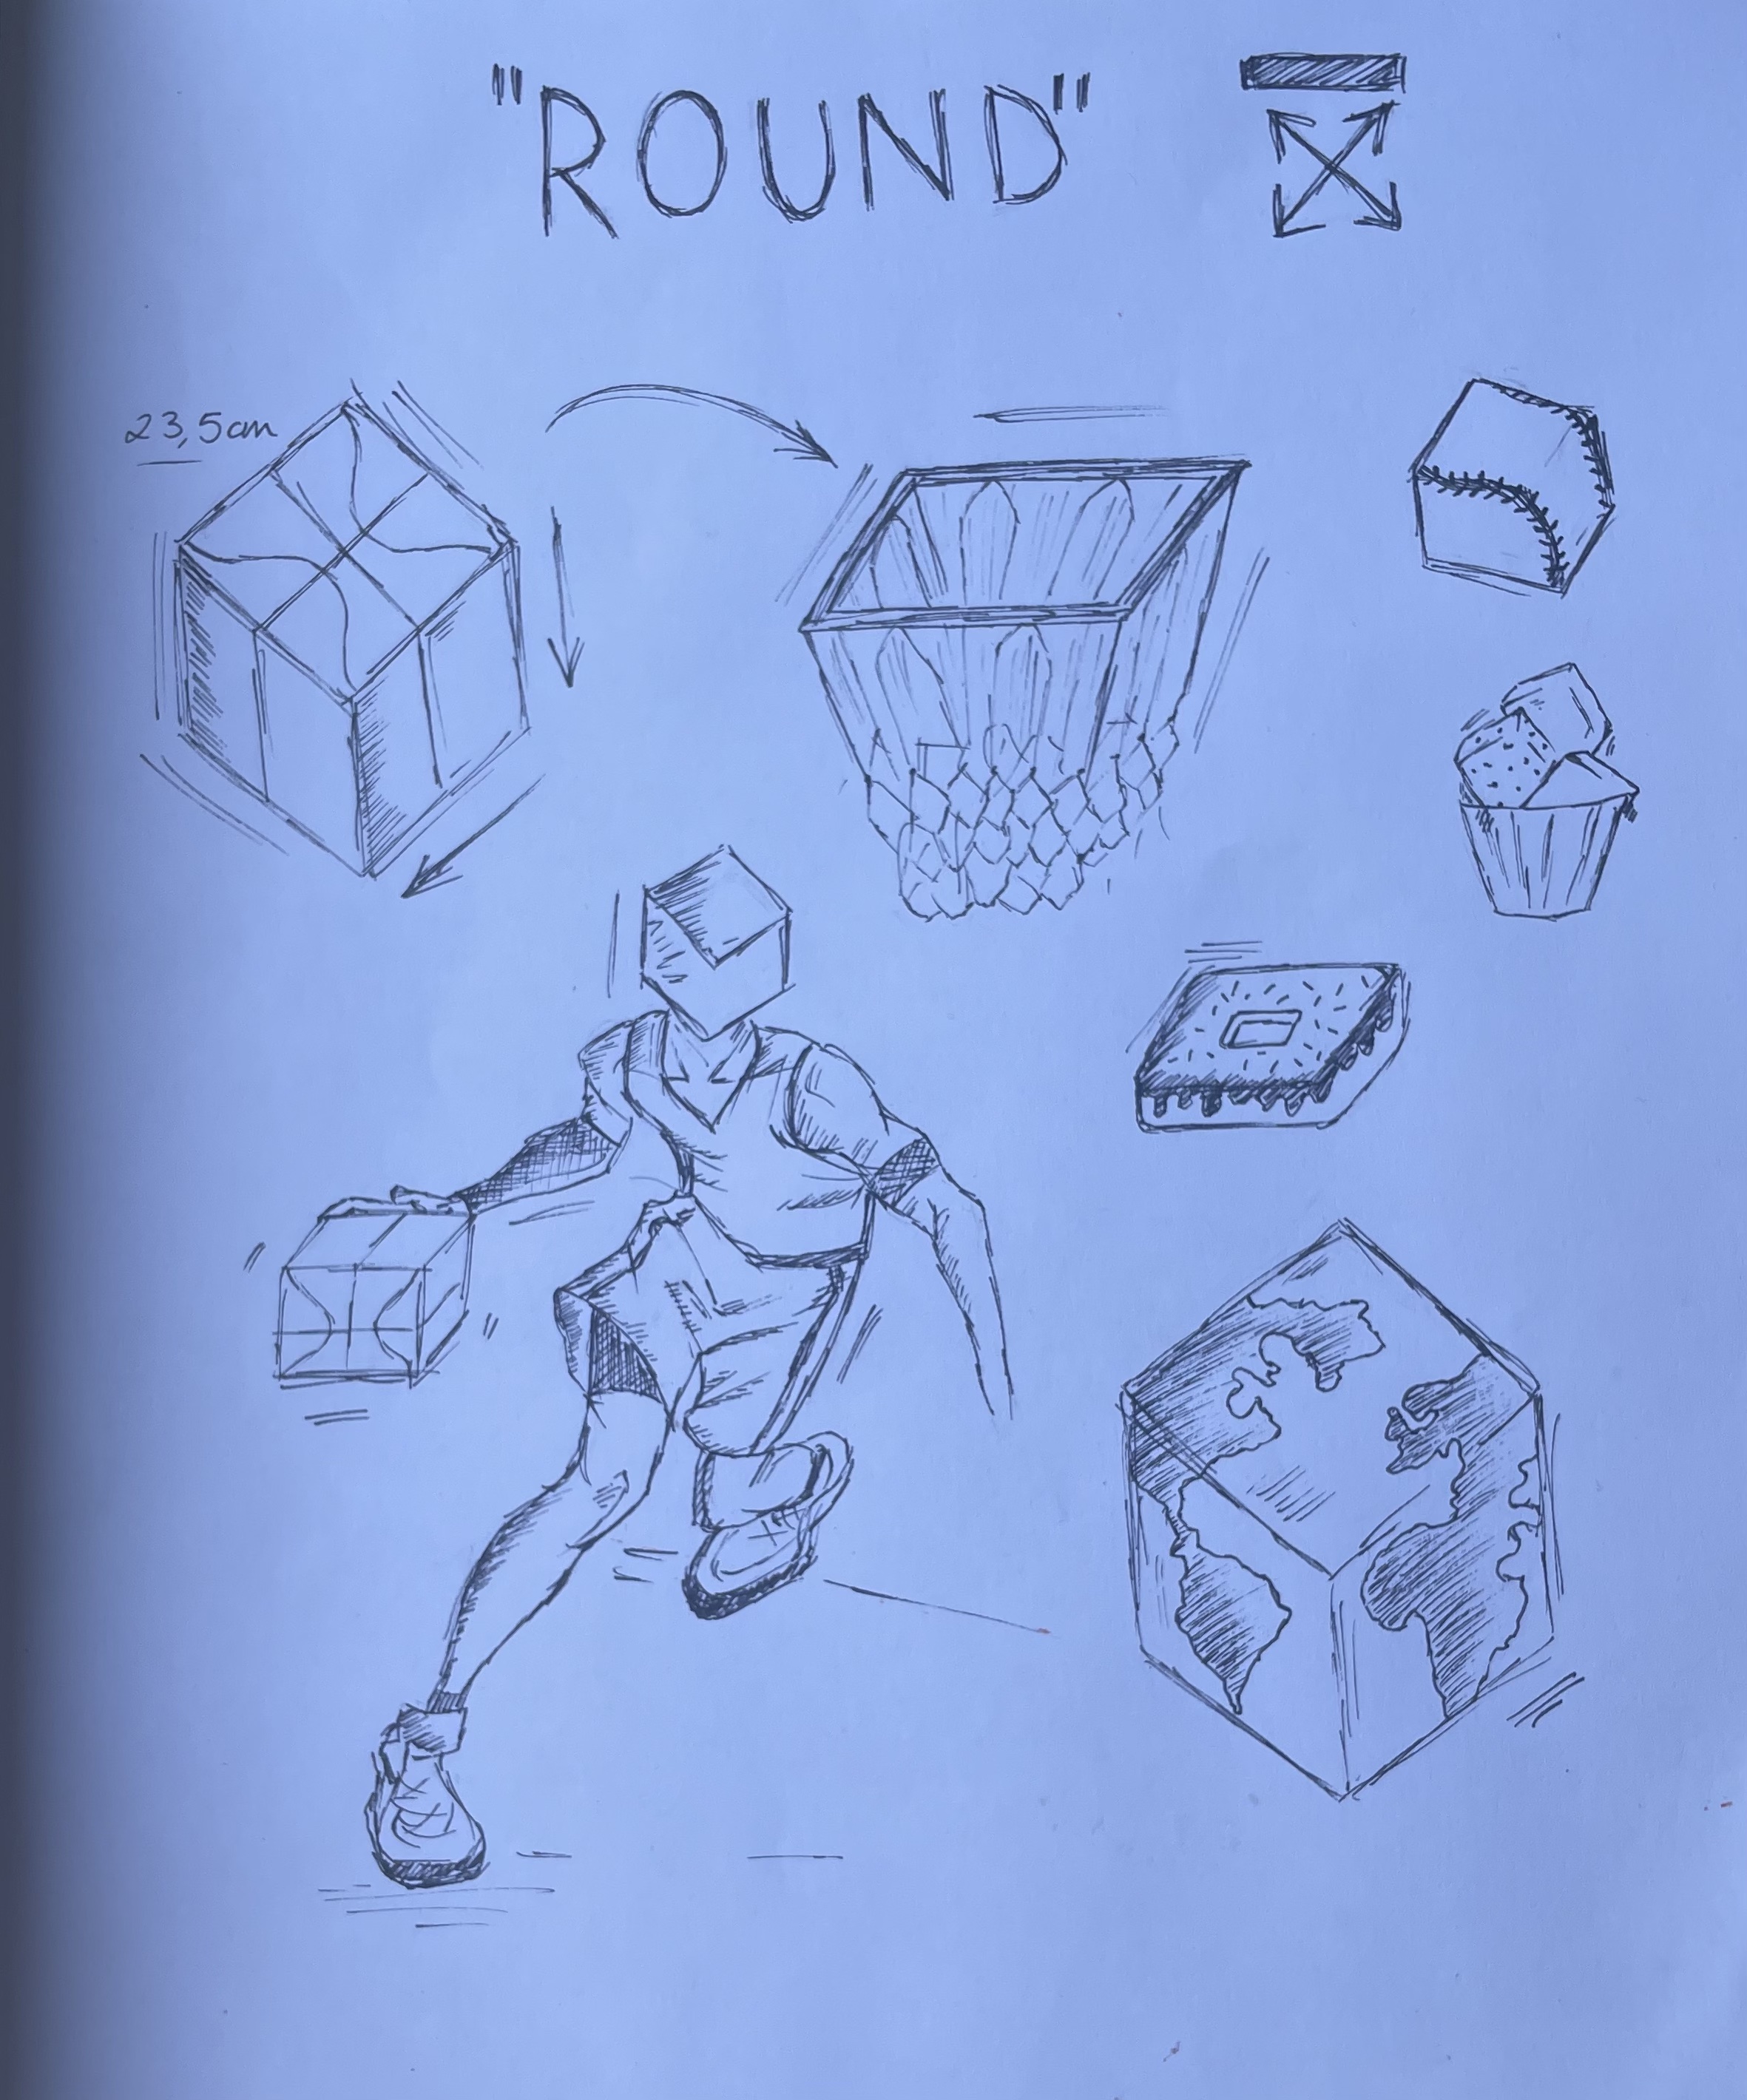 "ROUND"
23,5cm